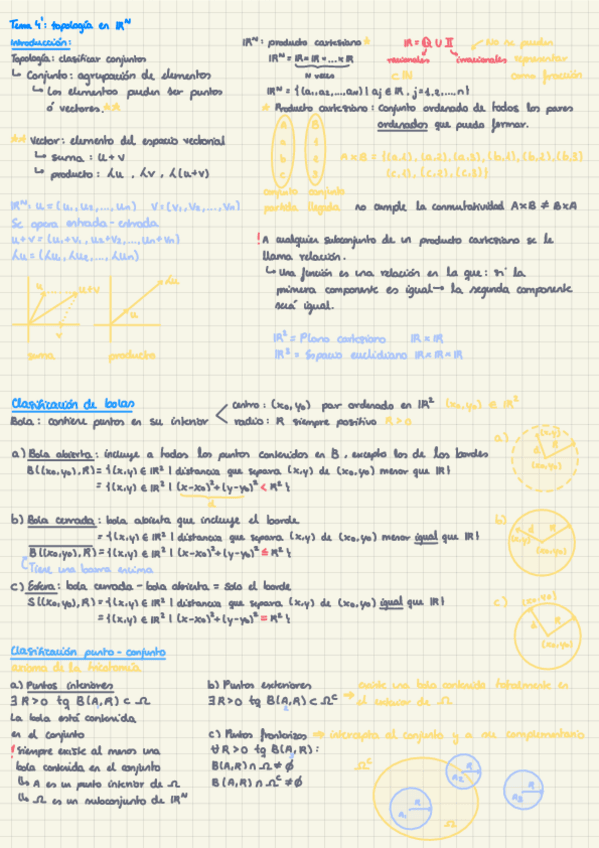 Tema 4: topología en IRᴺ
Introducción:
Topología: clasificar conjuntos
↳ Conjunto: agrupación de elementos
↳ Los elementos pueden ser puntos
ó vectores. **
** Vector: elemento del espacio vectorial
↳ suma: u+v
↳ producto: λu, λv, λ(u+v)
IRᴺ: u = (u₁, u₂, ..., uₙ) v = (v₁, v₂, ..., vₙ)
Se opera entrada-entrada
u+v = (u₁+v₁, u₂+v₂, ..., uₙ+vₙ)
λu = (λu₁, λu₂, ..., λuₙ)
u
u+v
v
suma
λu
u
producto
IRᴺ: producto cartesiano *
IRᴺ = IR × IR × ... × IR
N veces
IR = ℚ ∪ 𝕀
racionales irracionales
No se pueden
representar
como fracción
IRᴺ = {(a₁, a₂, ..., aₙ) | aⱼ ∈ IR, j=1,2,...,n}
* Producto cartesiano: conjunto ordenado de todos los pares
ordenados que puedo formar.
A × B = {(a,1), (a,2), (a,3), (b,1), (b,2), (b,3)
(c,1), (c,2), (c,3)}
conjunto conjunto
partida llegada
no cumple la conmutatividad A×B ≠ B×A
! A cualquier subconjunto de un producto cartesiano se le
llama relación.
↳ Una función es una relación en la que: si la
primera componente es igual → la segunda componente
será igual.
IR² = Plano cartesiano IR × IR
IR³ = Espacio euclidiano IR × IR × IR
Clasificación de bolas
Bola: contiene puntos en su interior
centro: (x₀, y₀) par ordenado en IR² (x₀, y₀) ∈ IR²
radio: R siempre positivo R > 0
a) Bola abierta: incluye a todos los puntos contenidos en B, excepto los de los bordes
B((x₀,y₀),R) = {(x,y) ∈ IR² | distancia que separa (x,y) de (x₀,y₀) menor que IR}
= {(x,y) ∈ IR² | (x-x₀)²+(y-y₀)² < R²}
d
a)
(x,y)
d
R
(x₀,y₀)
b) Bola cerrada: bola abierta que incluye el borde
= {(x,y) ∈ IR² | distancia que separa (x,y) de (x₀,y₀) menor igual que IR}
B((x₀,y₀),R) = {(x,y) ∈ IR² | (x-x₀)²+(y-y₀)² ≤ R²}
Tiene una barra encima
b)
(x,y)
d
R
(x₀,y₀)
c) Esfera: bola cerrada - bola abierta = solo el borde
S((x₀,y₀),R) = {(x,y) ∈ IR² | distancia que separa (x,y) de (x₀,y₀) igual que IR}
= {(x,y) ∈ IR² | (x-x₀)²+(y-y₀)² = R²}
c)
R
(x₀,y₀)
Clasificación punto-conjunto
axioma de la tricotomía
a) Puntos interiores
∃ R>0 tq B(A,R) ⊂ Ω
La bola está contenida
en el conjunto
! siempre existe al menos una
bola contenida en el conjunto
↳ A es un punto interior de Ω
↳ Ω es un subconjunto de IRᴺ
b) Puntos exteriores
∃ R>0 tq B(A,R) ⊂ Ωᶜ
⇒ existe una bola contenida totalmente en
el exterior de Ω
c) Puntos fronterizos ⇒ intercepta al conjunto y a su complementario
∀ R>0 tq B(A,R):
B(A,R) ∩ Ω ≠ ∅
B(A,R) ∩ Ωᶜ ≠ ∅
Ωᶜ
R
A₂
R
A₁
Ω
R
A₃